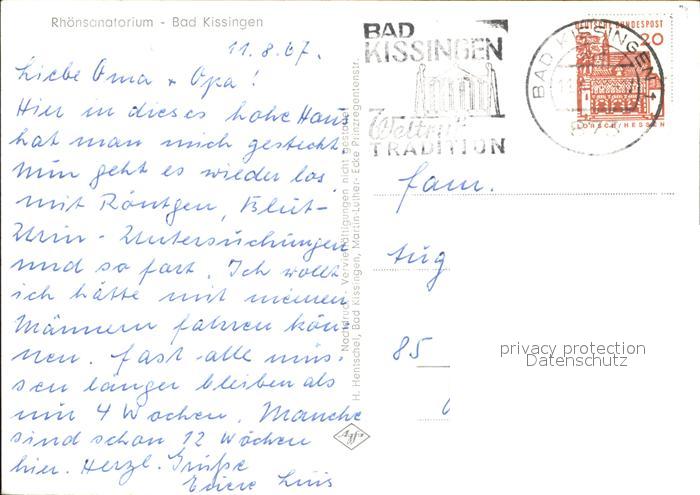 Rhönsanatorium - Bad Kissingen
11.8.67.
Liebe Oma + Opa!
Hier in dieses hohe Haus
hat man mich gesteckt.
Nun geht es wieder los
mit Röntgen, Blut-
Urin-Untersuchungen
und so fort. Ich wollt
ich hätte mit meinen
Männern fahren kön-
nen. Fast alle müs-
sen länger bleiben als
nur 4 Wochen. Manche
sind schon 12 Wochen
hier. Herzl. Grüße
Eure
Nachdruck - Vervielfältigungen nicht gestattet
H. Henischel, Bad Kissingen, Martin-Luther- Ecke Prinzregentenstr.
Agfa
BAD
KISSINGEN
Weltruf
TRADITION
BAD KISSINGEN
DEUTSCHE BUNDESPOST
20
LORSCH/HESSEN
Fam.
Aug
85
privacy protection
Datenschutz